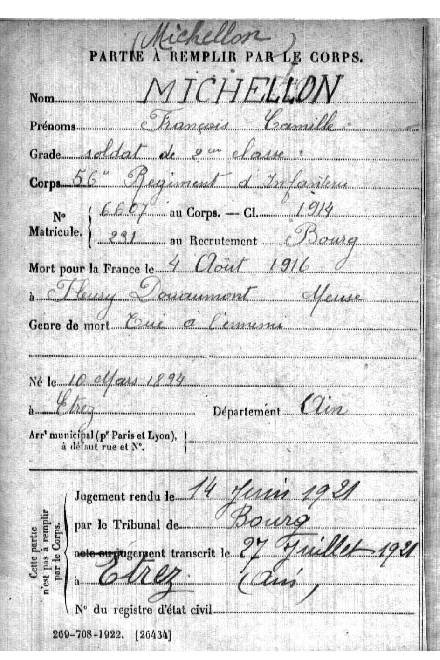 (Michellon)
PARTIE À REMPLIR PAR LE CORPS.
Nom MICHELLON
Prénoms François Camille
Grade soldat de 2me classe
Corps 56e Régiment d'Infanterie
N° Matricule. { 6607 au Corps. — Cl. 1914
221 au Recrutement Bourg
Mort pour la France le 4 Août 1916
à Fleury Douaumont Meuse
Genre de mort Tué à l'ennemi
Né le 10 Mars 1894
à Etrez Département Ain
Arrt municipal (pr Paris et Lyon), à défaut rue et N°.
Cette partie n'est pas à remplir par le Corps.
Jugement rendu le 14 Juin 1921
par le Tribunal de Bourg
acte ou jugement transcrit le 27 Juillet 1921
à Etrez (Ain)
N° du registre d'état civil
269-708-1922. [26434]